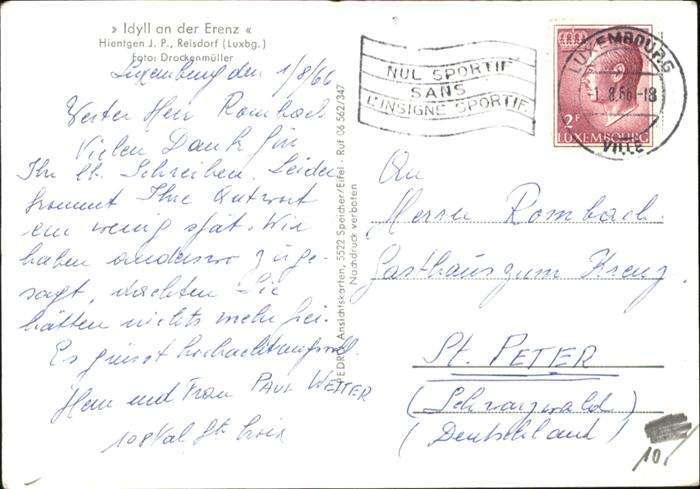 » Idyll an der Erenz «
Hientgen J. P., Reisdorf (Luxbg.)
Foto: Drockenmüller
Luxemburg den 1/8/66
Werter Herr Rombach
Vielen Dank für
Ihr lb. Schreiben. Leider
kommt Ihre Antwort
ein wenig spät. Wir
haben anderswo zuge-
sagt, dachten Sie
hätten nichts mehr frei.
Es grüsst hochachtungsvoll
Herr und Frau PAUL WETTER
108 Val. St. Croix
Ansichtskarten, 5522 Speicher/Eifel - Ruf 06 562/347
Nachdruck verboten
NUL SPORTIF
SANS
L'INSIGNE SPORTIF
LUXEMBOURG
1.8.66-18
VILLE
2F
LUXEMBOURG
An
Herrn Rombach.
Gasthaus zum Kreuz.
ST. PETER
(Schwarzwald)
(Deutschland)
10,